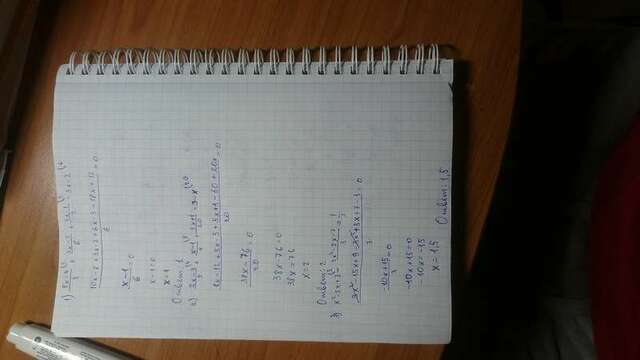 1) (5x-4)/3 + (3x-2)/6 + (2x-1)/2 = 3x-2
(10x-8+3x-2+6x-3-18x+12)/6 = 0
(x-1)/6 = 0
x-1=0
x=1
Ответ: 1
2) (2x-3)/5 + (x-1)/4 + (5x+1)/20 = 3-x
(8x-12+5x-5+5x+1-60+20x)/20 = 0
(38x-76)/20 = 0
38x-76=0
38x=76
x=2
Ответ: 2
3) x²-5x+3 - (3x²-5x-7)/3 = 1/3
(3x²-15x+9-3x²+5x+7-1)/3 = 0
(-10x+15)/3 = 0
-10x+15=0
-10x=-15
x=1,5
Ответ: 1,5